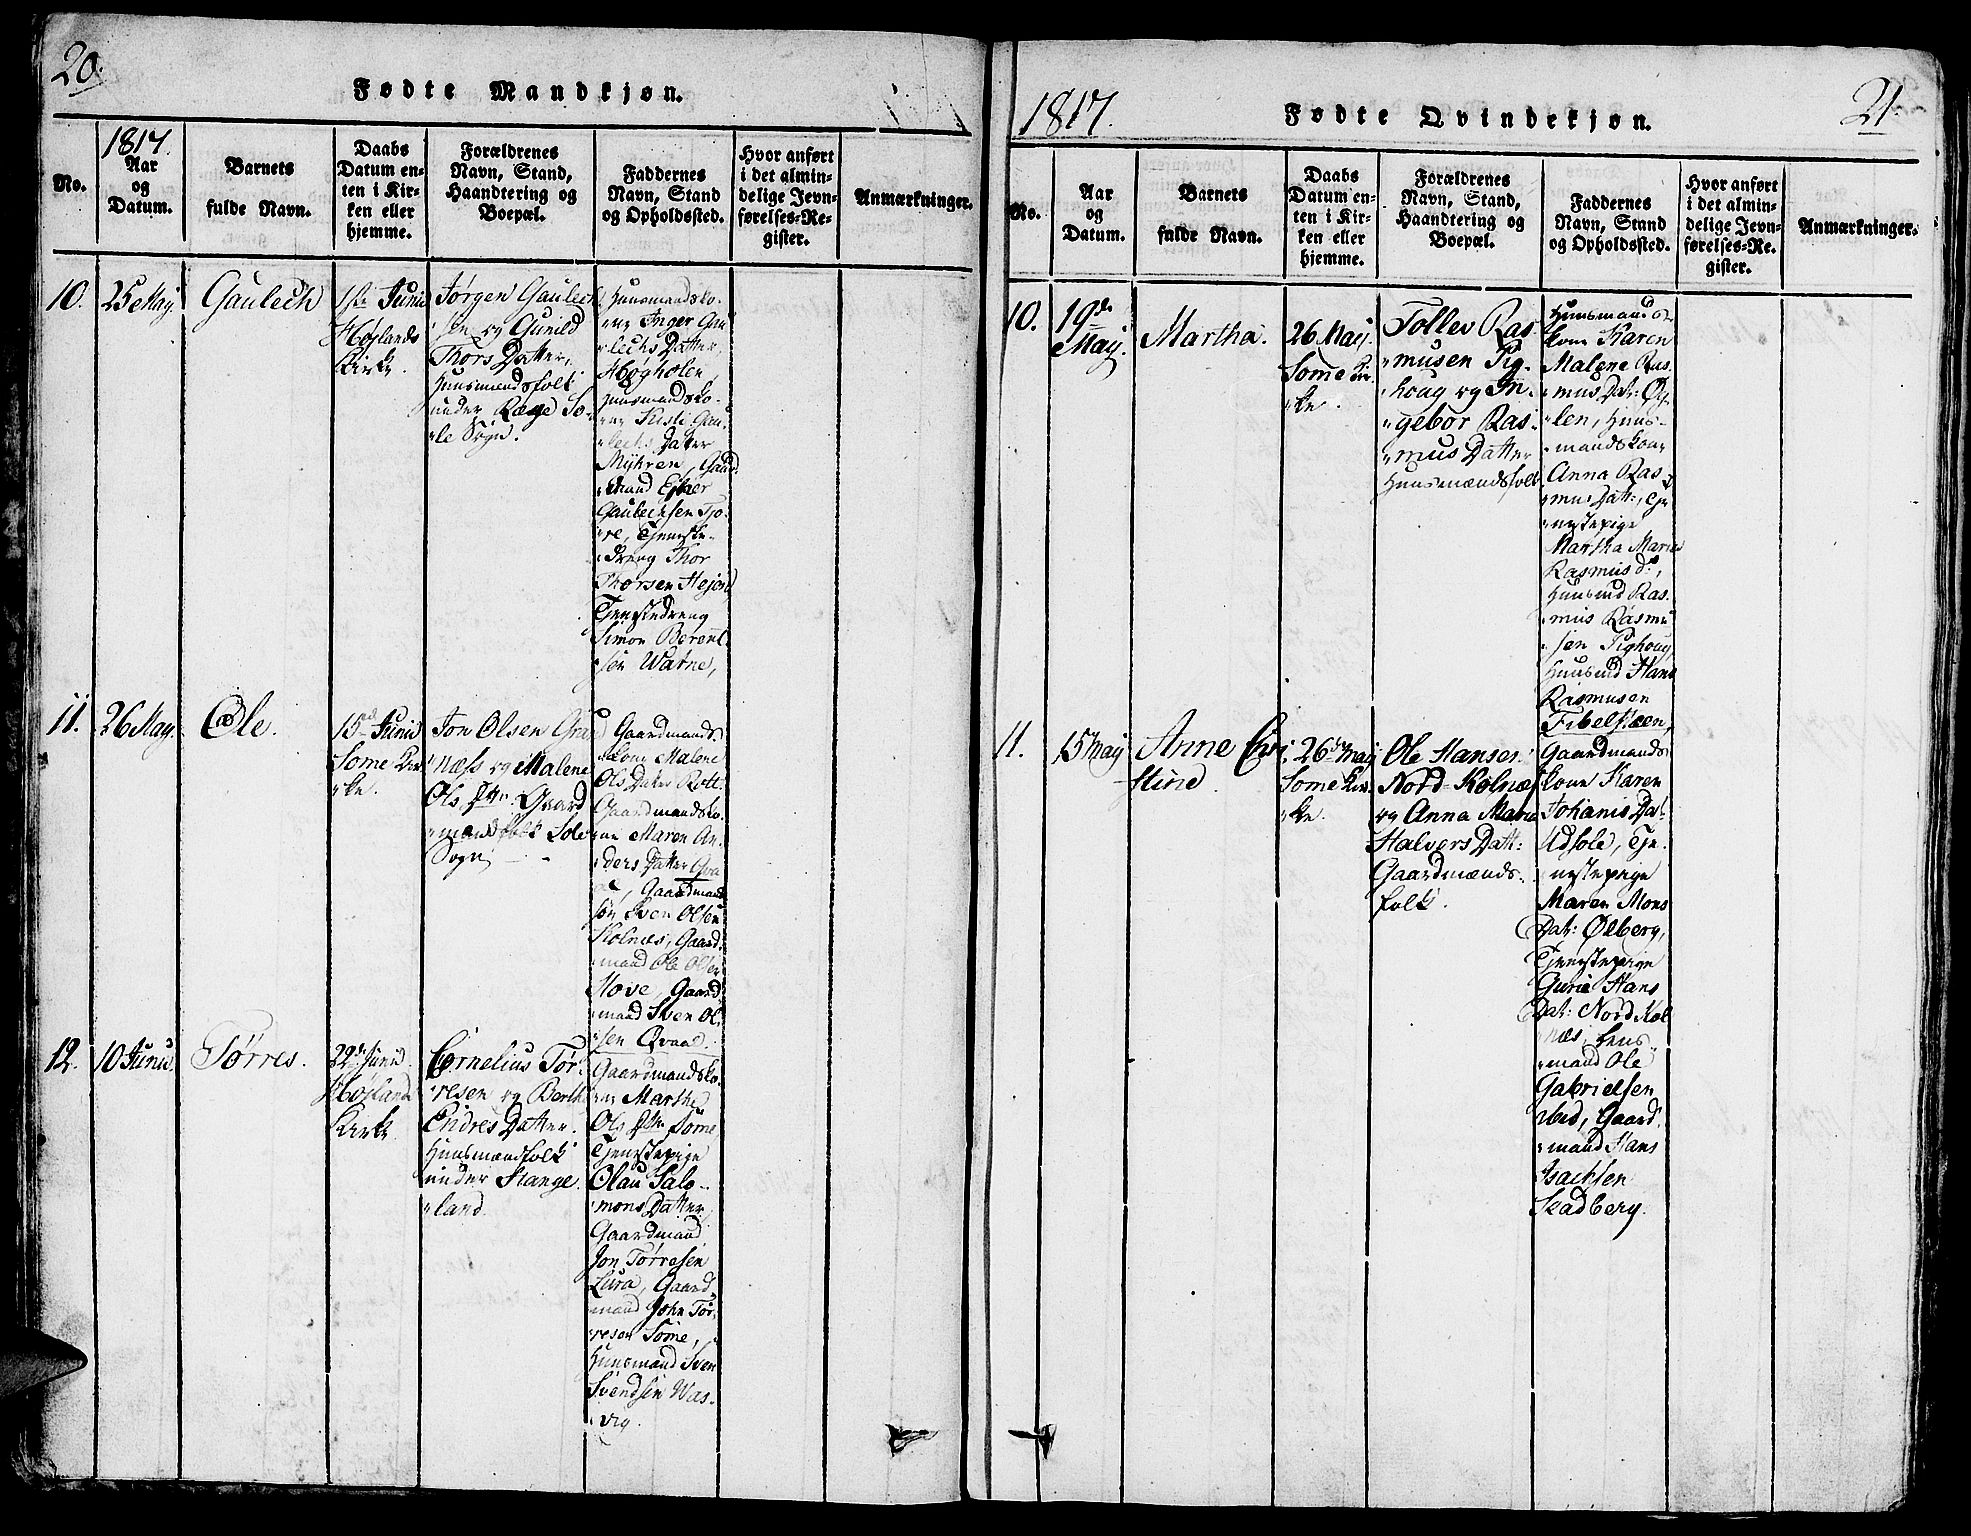 20.
Fødte Mandkjøn.
No.
1817.
Aar
og
Datum.
Barnets
fulde Navn.
Daabs
Datum en-
ten i Kir-
ken eller
hjemme.
Forældrenes
Navn, Stand,
Haandtering og
Boepæl.
Faddernes
Navn, Stand
og Opholdssted.
Hvor anført
i det almin-
delige Jevn-
førelses-Re-
gister.
Anmærkninger.
10.
25e May.
Gaulech
1ste Junii
Højlands
Kirke.
Jørgen Gaulech
sen og Gunild
Thors Datter,
Huusmandsfolk
under Ræge So-
le Sogn.
Huusmandsko-
ne Inger Gau
lechs Datter,
Hogholen,
Huusmandsko-
ne Kisti Gau
lechs Datter
Myhren, Gaard
mand Ejler
Gaulechsen Tjo-
re, Tjeneste-
dreng Thor
Thorsen
Tjenstedreng
Simon Berent
sen Watne,
11.
26 May.
Ole.
15de Junii
Some Kir
ke.
Jon Olsen Gra
næss og Malene
Ols Dtr: Gaard
mandsfolk Sole
Sogn
Gaardmands
kone Malene
Ols Datter Rott
Gaardmandsko
ne Maren An-
ders Datter
Gaardmand
søn Sven Olsen
Kolnæs, Gaard
mand Ole Olsen
Hove, Gaard
mand Sven Ol
sen Qvaal.
12.
10 Junii.
Tørres.
22de Junii
Højland
Kirke.
Cornelius Tør
resen og Berthe
Endres Datter.
Huusmandfolk
under Stange
land.
Gaardmandsko
ne Marthe
Ols Dtr Some,
Tjenstepige
Olau Salo-
mons Datter
Gaardmand
Jon Tørresen
Lura, Gaard
mand John Tør
resen Some,
Huusmand Sven
Svendsen Was-
vig.
1817.
Fødte Qvindekjøn.
21.
No.
Aar
og
Datum.
Barnets
fulde Navn.
Daabs
Datum en-
ten i Kir-
ken eller
hjemme.
Forældrenes
Navn, Stand,
Haandtering og
Boepæl.
Faddernes
Navn, Stand
og Opholdssted.
Hvor anført
i det almin-
delige Jevn-
førelses-Re-
gister.
Anmærkninger.
10.
19de
May.
Martha.
26 May.
Some Kir
ke.
Tollev Ras
musen Pig-
houg og In
gebor Ras
mus Datter
Huusmændsfolk
Huusmands
kone Karen
Malene Ras
mus Dat: Øy
len, Huus-
mandskone
Anna Ras
mus Datt:, Tje
nestepige
Martha Marie
Rasmus d.,
Huusmd Ras
mus Rasmu
sen Pighoug
Huusmd Hans
Rasmusen
Fibelsteen,
11.
15 May
Anne Chri
stine
26de May
Some Kir
ke.
Ole Hansen
Nord-Kolnæs
og Anna Marie
Halvers Datt:
Gaardmænds-
folk.
Gaardmands
kone Karen
Johanis Dat
Udsole, Tje
nestepige
Maren Mons
Dat: Ølberg,
Tjenestepige
Gurie Hans
Dat: Nord Kol
næs, Lens
mand Ole
Gabrielsen
ibid, Gaard
mand Hans
Isachsen
Stadberg.